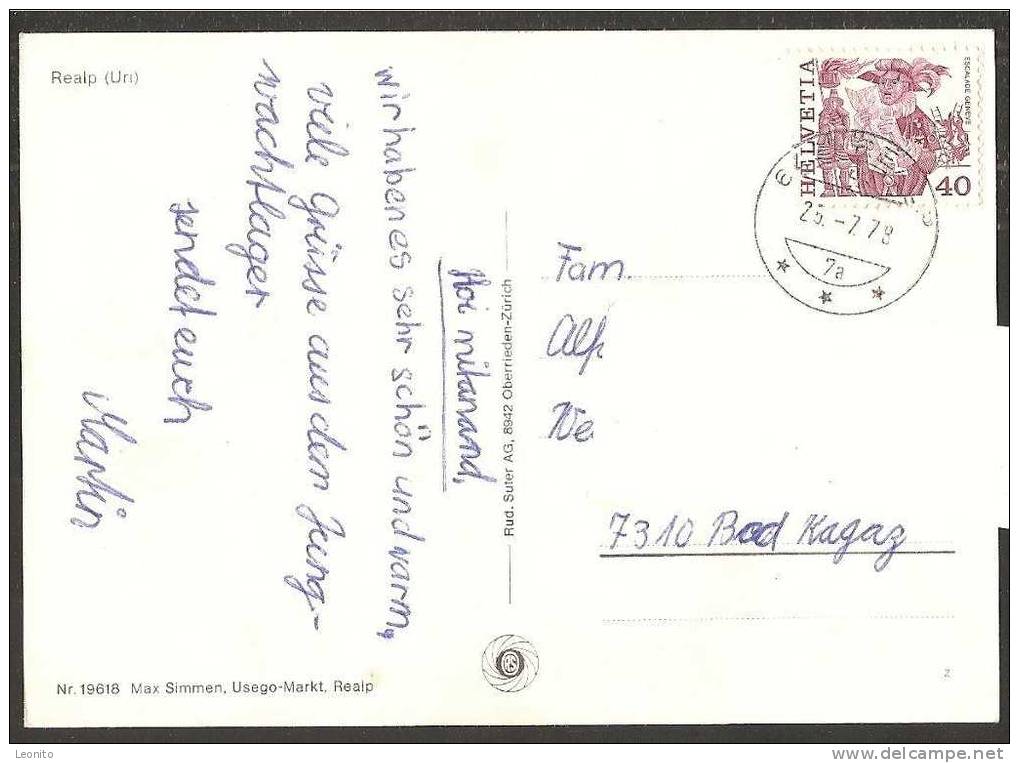 Realp (Uri)
HELVETIA
ESCALADE GENÈVE
40
25.-7.78
7a
Hoi mitanand,
wir haben es sehr schön und warm,
viele Grüsse aus dem Jung-
wachtlager
sendet euch
Martin
Rud. Suter AG, 8942 Oberrieden-Zürich
Fam.
Alf.
We
7310 Bad Ragaz
Nr. 19618 Max Simmen, Usego-Markt, Realp
z
Leonito
www.delcampe.net